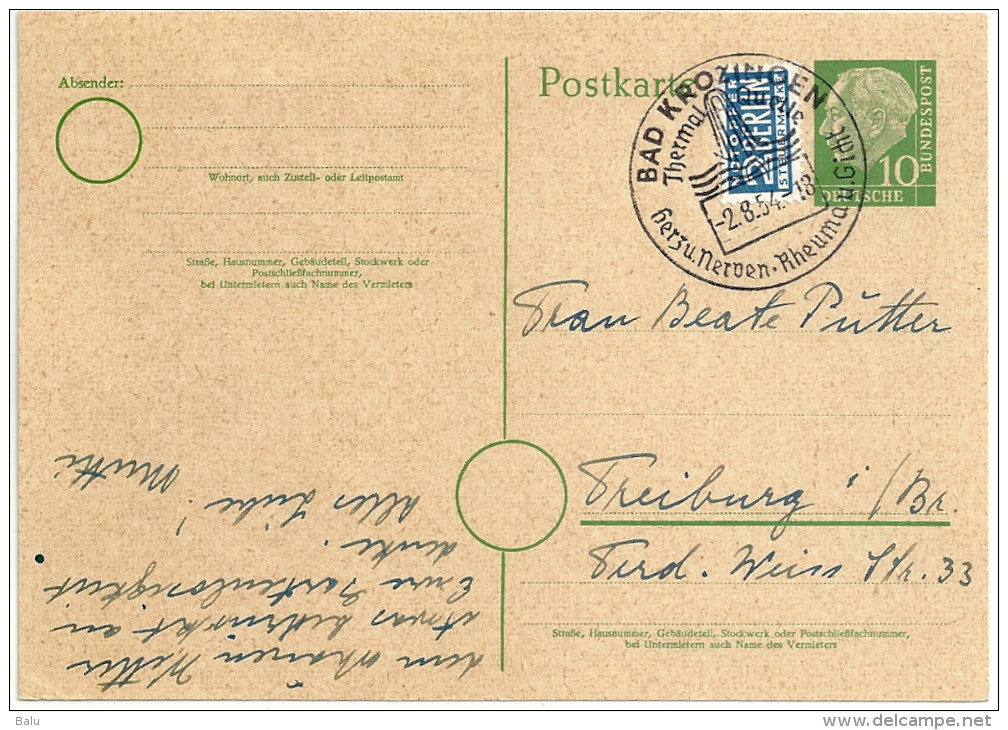 Absender:
Wohnort, auch Zustell- oder Leitpostamt
Straße, Hausnummer, Gebäudeteil, Stockwerk oder
Postschließfachnummer,
bei Untermietern auch Name des Vermieters
Postkarte
BAD KROZINGEN
Thermal
-2.8.54.-18
Herz u. Nerven. Rheuma u. Gicht
2 BERLIN
STEUERMARKE
NOTOPFER
10
DEUTSCHE
BUNDESPOST
Frau Beate Pütter
Freiburg i/Br.
Ferd. Weiss Str. 33
Straße, Hausnummer, Gebäudeteil, Stockwerk oder Postschließfachnummer,
bei Untermietern auch Name des Vermieters
dem schönen Wetter
etwas bedrückt an
Eure
denke.
Alles Liebe!
Mutti
Balu
delcampe.net